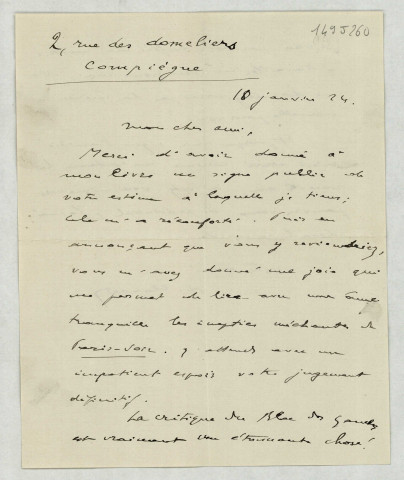 149J260
2, rue des domeliers
Compiègne
18 janvier 24.
mon cher ami,
Merci d'avoir donné à
mon livre un signe public de
votre estime à laquelle je tiens;
cela m'a réconforté. Puis en
annonçant que vous y reviendriez,
vous m'avez donné une joie qui
me permet de lire avec une âme
tranquille les inepties méchantes de
Paris-Soir. J'attends avec un
impatient espoir votre jugement
définitif.
La critique du Bloc des Gauches
est vraiment une étonnante chose!